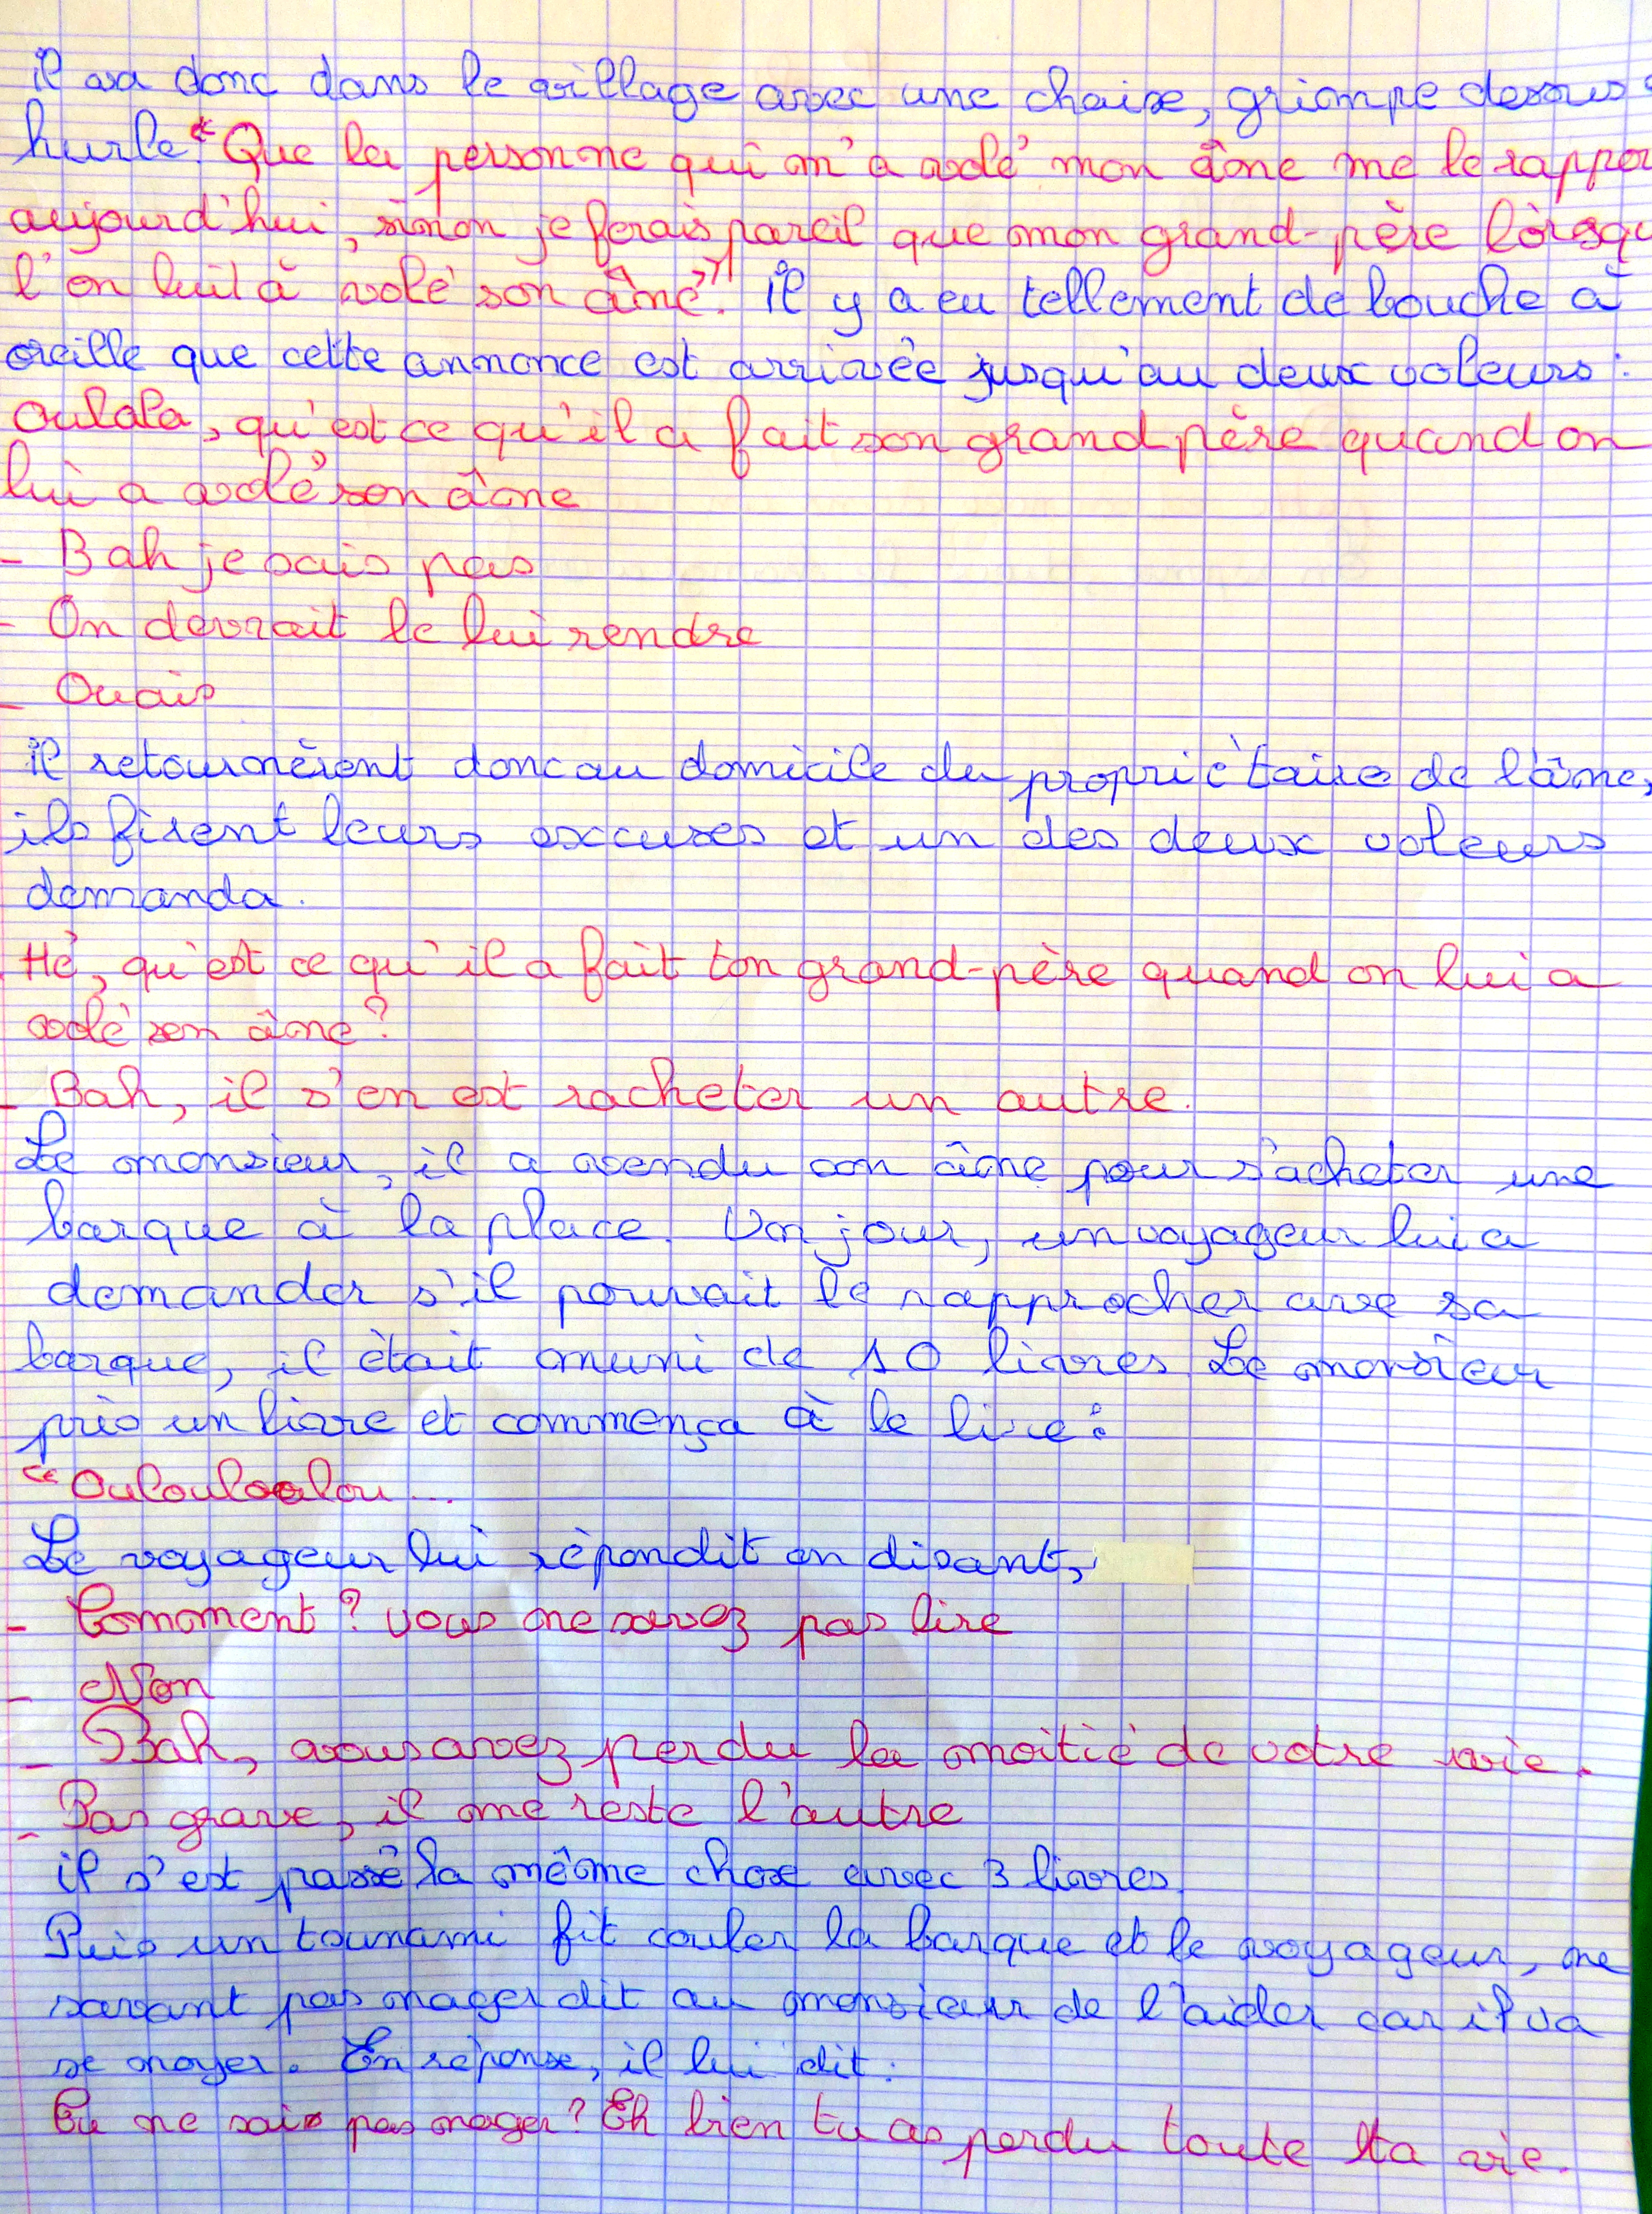 il va donc dans le village avec une chaise, grimpe dessus
hurle: "Que la personne qui m'a volé mon âne me le rappor
aujourd'hui, sinon je ferais pareil que mon grand-père lorsqu
l'on luil à volé son âne". il y a eu tellement de bouche à
oreille que cette annonce est arrivée jusqu'au deux voleurs:
Oulala, qu'est ce qu'il a fait son grand père quand on
lui a volé son âne
- Bah je sais pas
- On devrait le lui rendre
- Ouais
il retournèrent donc au domicile du propriétaire de l'âne,
ils firent leurs excuses et un des deux voleurs
demanda.
Hé, qu'est ce qu'il a fait ton grand-père quand on lui a
volé son âne?
- Bah, il s'en est racheter un autre.
Le monsieur, il a vendu son âne pour s'acheter une
barque à la place. Un jour, un voyageur lui a
demander s'il pouvait le rapprocher ave sa
barque, il était muni de 10 livres. Le monsieur
pris un livre et commença à le lire:
"Oulouloulou...
Le voyageur lui répondit en disant,
- Comment? vous ne savez pas lire
- Non
- Bah, vous avez perdu la moitié de votre vie.
- Pas grave, il me reste l'autre
il s'est passé la même chose avec 3 livres.
Puis un tsunami fit couler la barque et le voyageur, ne
savant pas nager dit au monsieur de l'aider car il va
se noyer. En réponse, il lui dit:
Tu ne sais pas nager? Eh bien tu as perdu toute ta vie.